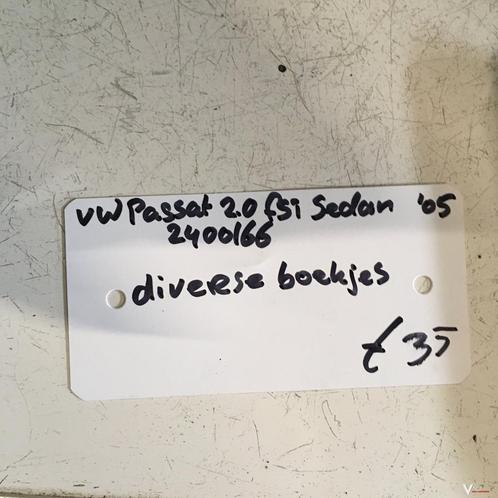 VW Passat 2.0 fsi Sedan '05
2400166
diverse boekjes
€ 35